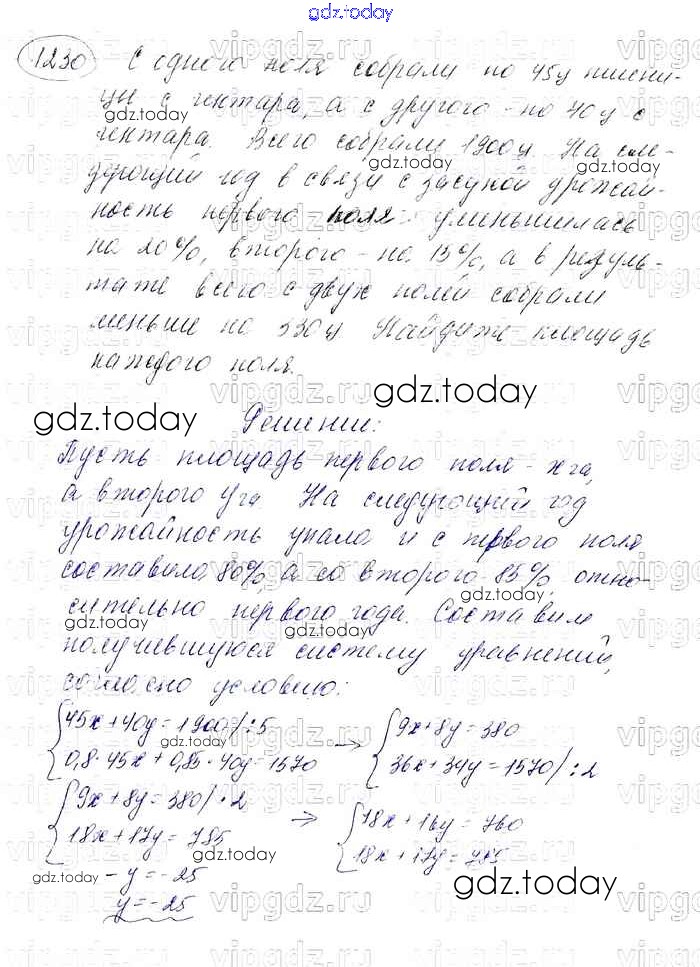 gdz.today
1230 С одного поля собрали по 45 ц пшени-
цы с гектара, а с другого - по 40 ц с
гектара. Всего собрали 1900 ц. На сле-
дующий год в связи с засухой урожай-
ность первого поля уменьшилась
на 20%, второго - на 15%, а в резуль-
тате всего с двух полей собрали
меньше на 330 ц. Найдите площадь
каждого поля.
Решение:
Пусть площадь первого поля - x га,
а второго y га. На следующий год
урожайность упала и с первого поля
составила 80%, а со второго 85% отно-
сительно первого года. Составим
получившуюся систему уравнений,
согласно условию:
{45x + 40y = 1900 / : 5
0,8 · 45x + 0,85 · 40y = 1570
→ {9x + 8y = 380
36x + 34y = 1570 / : 2
{9x + 8y = 380 / · 2
18x + 17y = 785
→ {18x + 16y = 760
18x + 17y = 785
- y = - 25
y = - 25
gdz.today
gdz.today
gdz.today
gdz.today
gdz.today
gdz.today
gdz.today
gdz.today
gdz.today
gdz.today
gdz.today
gdz.today
gdz.today
vipgdz.ru